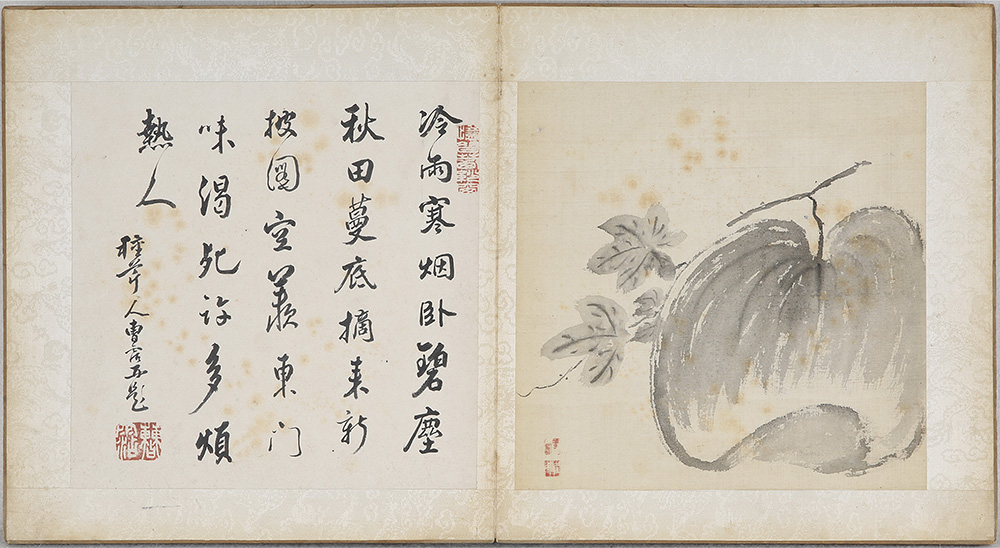 冷雨寒烟臥碧塵
秋田蔓底摘来新
披圖空羨東门
味渴死許多煩
熱人
種芥人曹題